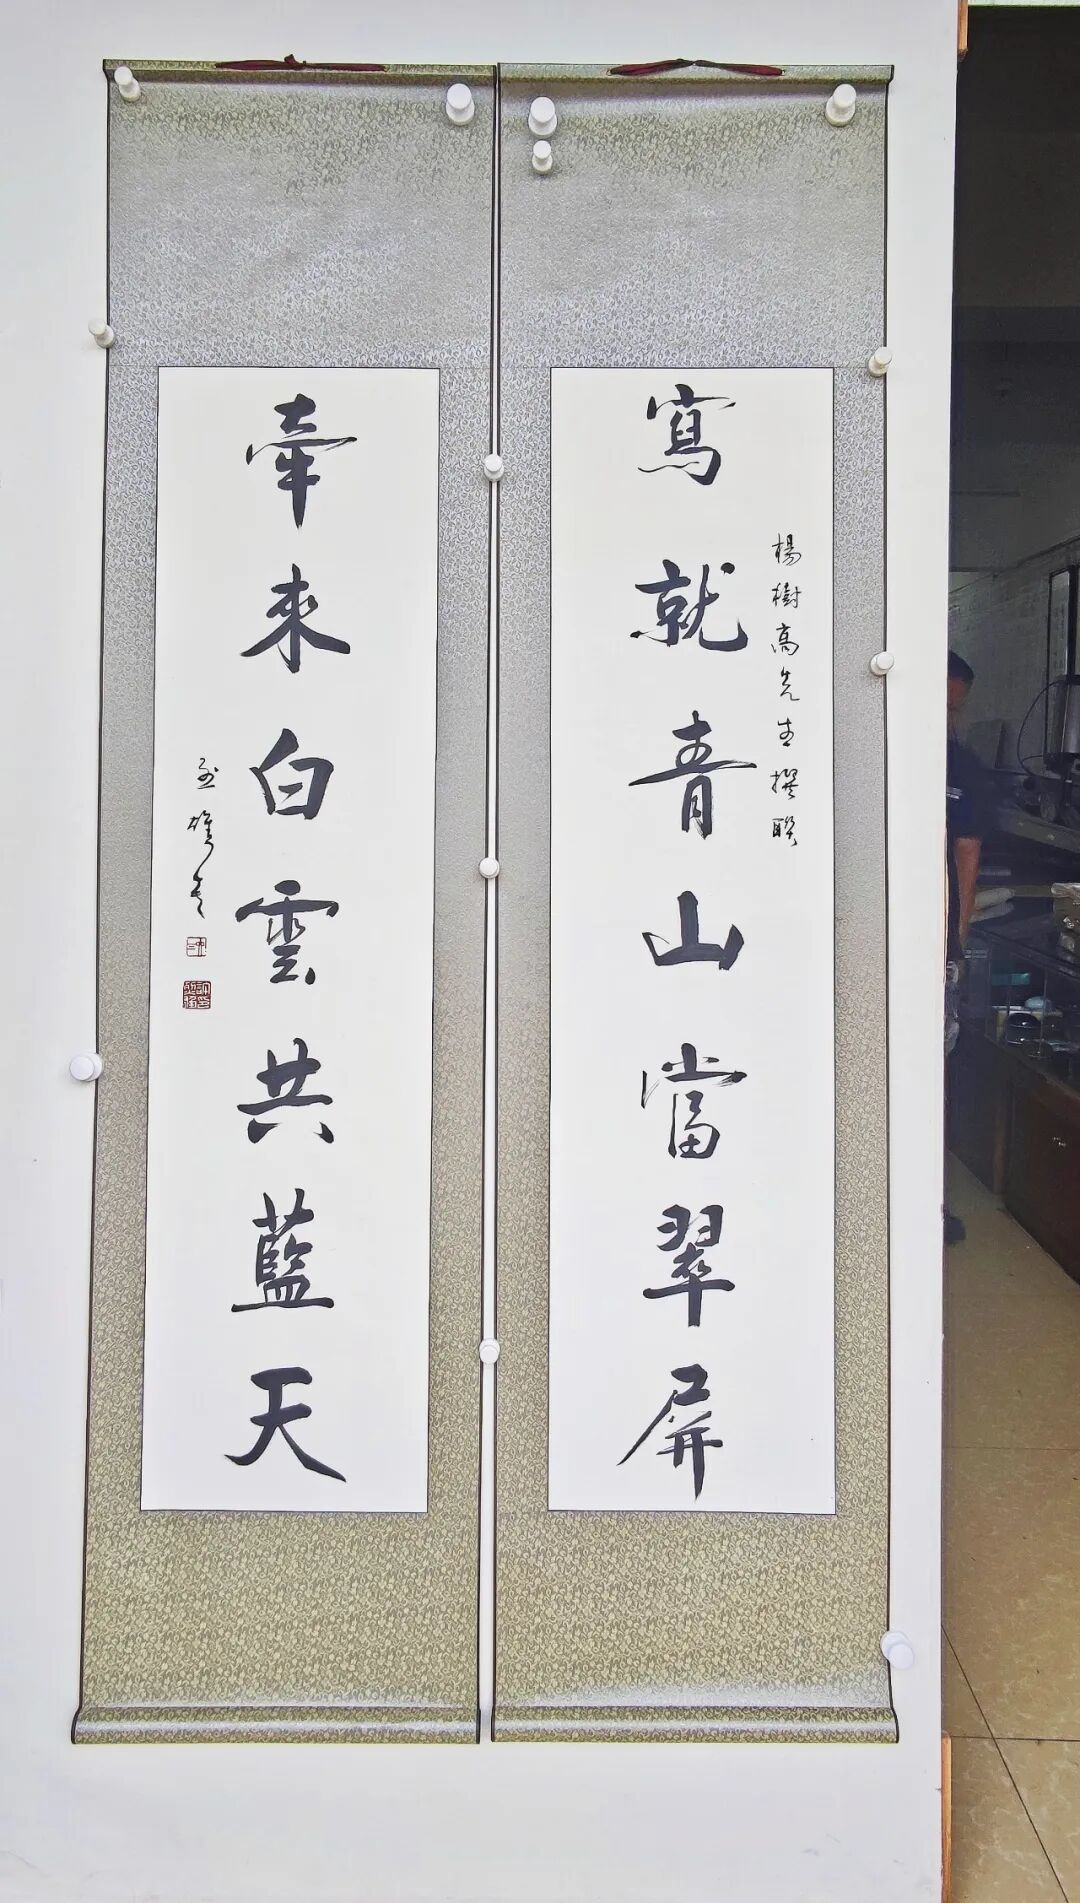 寫就青山當翠屏
楊樹高先生撰聯
牽來白雲共藍天